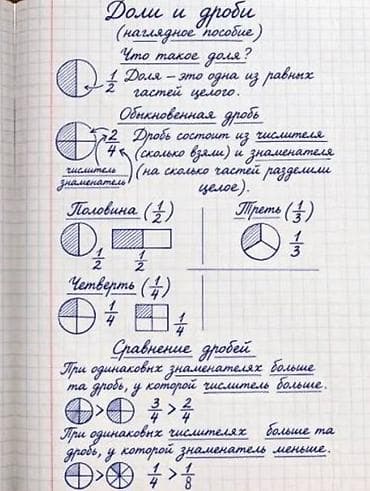 Доли и дроби
(наглядное пособие)
Что такое доля?
1/2 Доля – это одна из равных
гастей целого.
Обыкновенная дробь
2/4 Дробь состоит из числителя
(сколько взяли) и знаменателя
(на сколько частей разделили
целое).
числитель
знаменатель
Половина (1/2)
1/2 1/2
Треть (1/3)
1/3
Четверть (1/4)
1/4 1/4
Сравнение дробей
При одинаковых знаменателях больше
та дробь, у которой числитель больше.
> 3/4 > 2/4
При одинаковых числителях больше та
дробь, у которой знаменатель меньше.
> 1/4 > 1/8